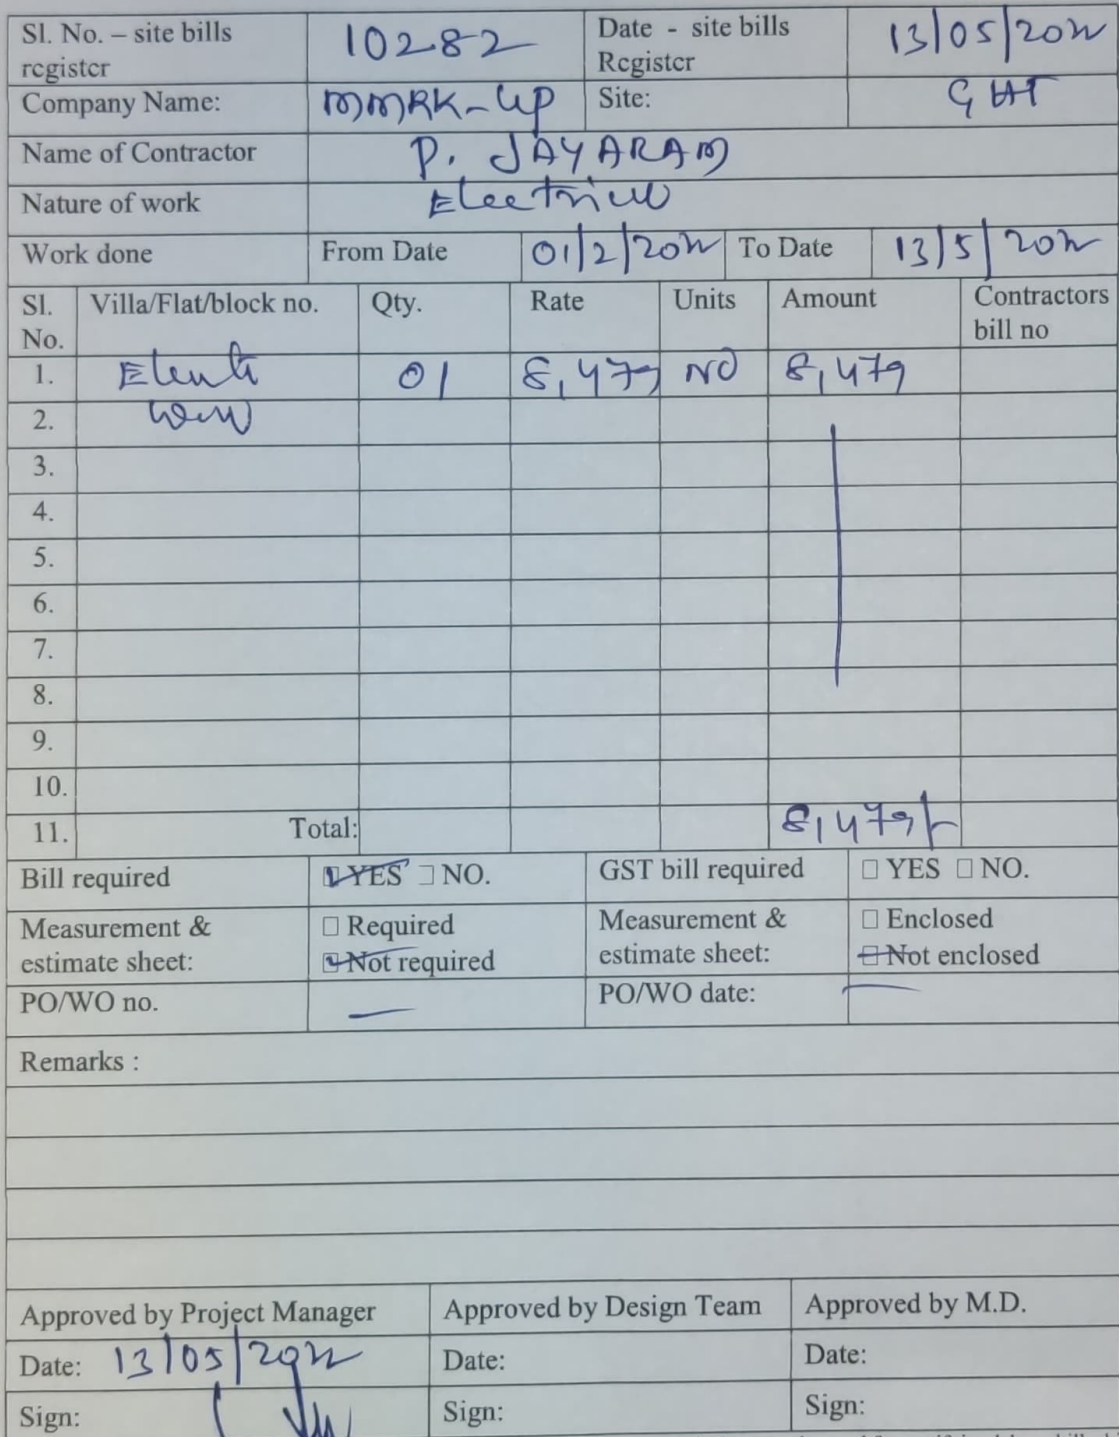 Sl. No. – site bills register 10282 Date - site bills Register 13/05/2022
Company Name: MMRK-LLP Site: GHT
Name of Contractor P. JAYARAM
Nature of work Electrical
Work done From Date 01/2/2022 To Date 13/5/2022
Sl. No. Villa/Flat/block no. Qty. Rate Units Amount Contractors bill no
1. 01 8,479 NO 8,479
2.
3.
4.
5.
6.
7.
8.
9.
10.
11. Total: 8,479/-
Bill required YES NO. GST bill required YES NO.
Measurement & estimate sheet: Required Not required Measurement & estimate sheet: Enclosed Not enclosed
PO/WO no. — PO/WO date: —
Remarks :
Approved by Project Manager Approved by Design Team Approved by M.D.
Date: 13/05/2022 Date: Date:
Sign: Sign: Sign: